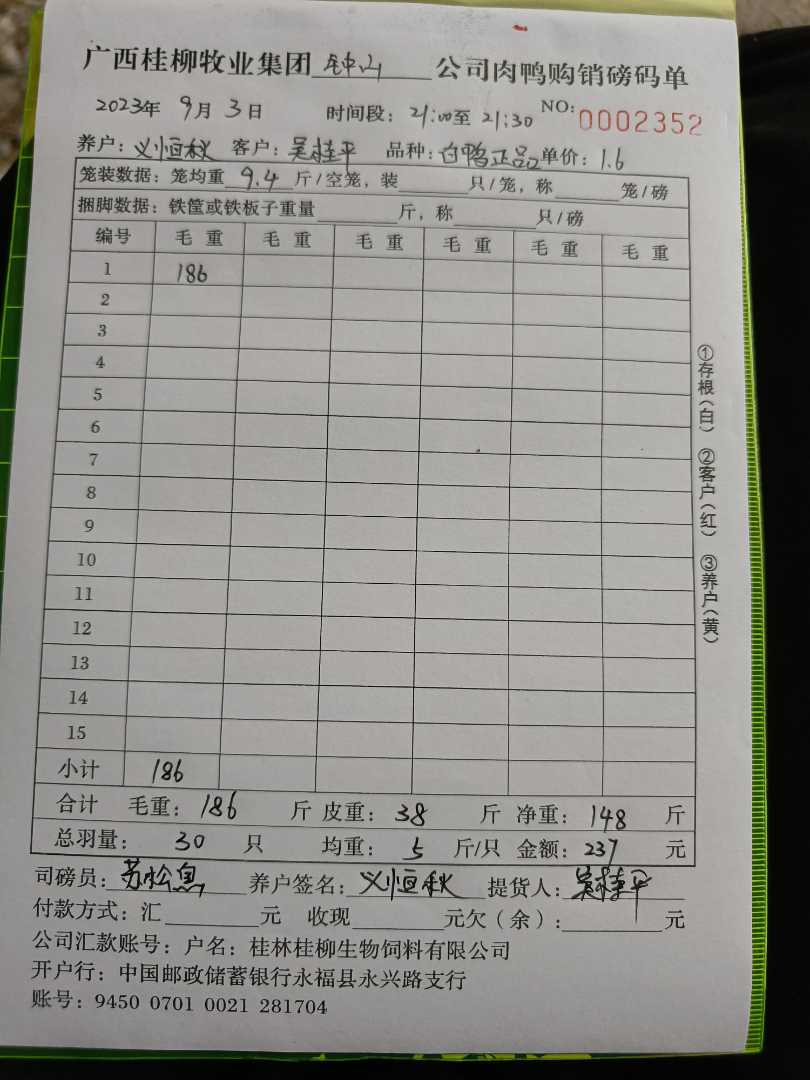 广西桂柳牧业集团 钟山 公司肉鸭购销磅码单
2023年 9月 3日 时间段: 21:00至 21:30 NO: 0002352
养户: 义恒秋 客户: 吴桂平 品种: 白鸭正品 单价: 1.6
笼装数据: 笼均重 9.4 斤/空笼, 装 只/笼, 称 笼/磅
捆脚数据: 铁筐或铁板子重量 斤, 称 只/磅
编号 毛重 毛重 毛重 毛重 毛重 毛重
1 186
2
3
4
5
6
7
8
9
10
11
12
13
14
15
小计 186
合计 毛重: 186 斤 皮重: 38 斤 净重: 148 斤
总羽量: 30 只 均重: 5 斤/只 金额: 237 元
司磅员: 苏松 养户签名: 义恒秋 提货人: 吴桂平
付款方式: 汇 元 收现 元欠(余): 元
公司汇款账号: 户名: 桂林桂柳生物饲料有限公司
开户行: 中国邮政储蓄银行永福县永兴路支行
账号: 9450 0701 0021 281704
①存根(白) ②客户(红) ③养户(黄)